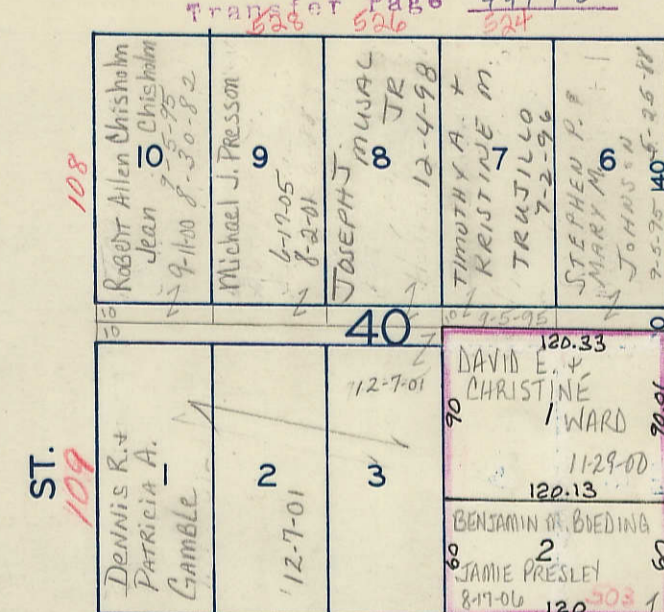 Transfer Page
528 526 524
108
Robert Allen Chisholm
Jean Chisholm
9-5-95
9-11-00 8-30-82
10
Michael J. Presson
9
6-17-05
8-2-01
JOSEPH J. MUSAL
JR
8
12-4-98
TIMOTHY A. +
KRISTINE M.
7
TRUJILLO
7-2-96
STEPHEN P. &
MARY M.
6
JOHNSON
9-5-95
5-25-88
140
10
10
40
10
9-5-95
ST.
109
DENNIS R. +
PATRICIA A.
1
GAMBLE
2
12-7-01
12-7-01
3
120.33
DAVID E. +
CHRISTINE
90
1
WARD
11-29-00
120.13
BENJAMIN M. BOEDING
60
2
60
JAMIE PRESLEY
8-17-06
120
503